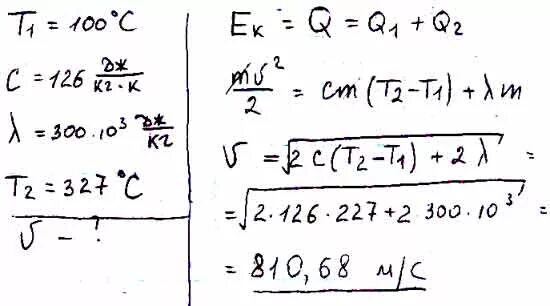 T₁ = 100°C
C = 126 дж/кг·к
λ = 300·10³ дж/кг
T₂ = 327°C
v - ?
Eк = Q = Q₁ + Q₂
mv²/2 = cm(T₂-T₁) + λm
v = √(2c(T₂-T₁) + 2λ) =
= √(2·126·227 + 2·300·10³) =
= 810,68 м/с